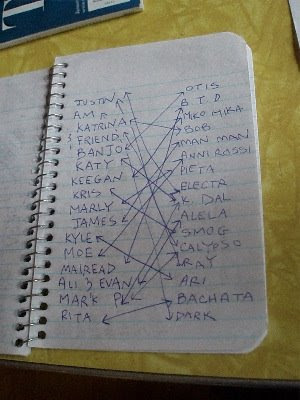 JUSTIN
AM
KATRINA
& FRIEND
BANJO
KATY
KEEGAN
KRIS
MARLY
JAMES
KYLE
MOE
MAIREAD
ALI & EVAN
MARK P
RITA
OTIS
B.T.D.
MIKA
BOB
MAN MAN
ANNI ROSSI
PIETA
ELECTR
K. DAL
ALELA
SMOG
CALYPSO
RAY
ARI
BACHATA
DARK